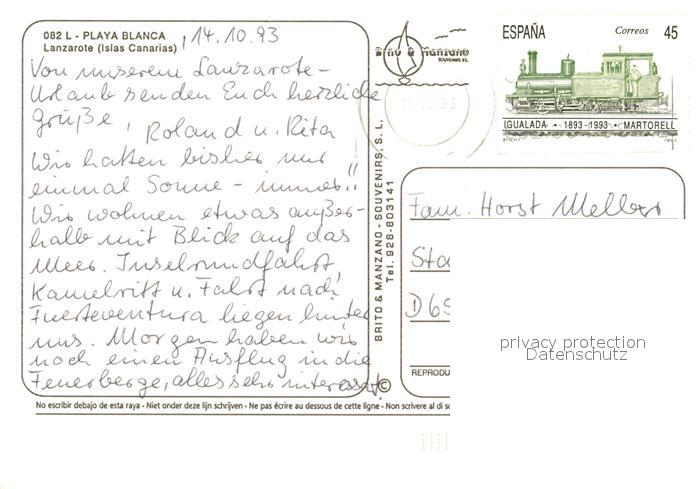 082 L - PLAYA BLANCA
Lanzarote (Islas Canarias)
, 14.10.93
Von unserem Lanzarote-
Urlaub senden Euch herzliche
Grüße, Roland u. Rita
Wir hatten bisher nur
einmal Sonne - immer!!
Wir wohnen etwas außer-
halb mit Blick auf das
Meer. Inselrundfahrt,
Kamelritt u. Fahrt nach
Fuerteventura liegen hinter
uns. Morgen haben wir
noch einen Ausflug in die
Feuerberge, alles sehr interessant.
©
No escribir debajo de esta raya - Niet onder deze lijn schrijven - Ne pas écrire au dessous de cette ligne - Non scrivere al di s
BRITO & MANZANO - SOUVENIRS, S. L.
Tel. 928-803141
Brito & Manzano
SOUVENIRS S.L.
ESPAÑA Correos 45
IGUALADA · 1893-1993 · MARTORELL
Fam. Horst Melber
Sta
D 69
REPRODU
privacy protection
Datenschutz